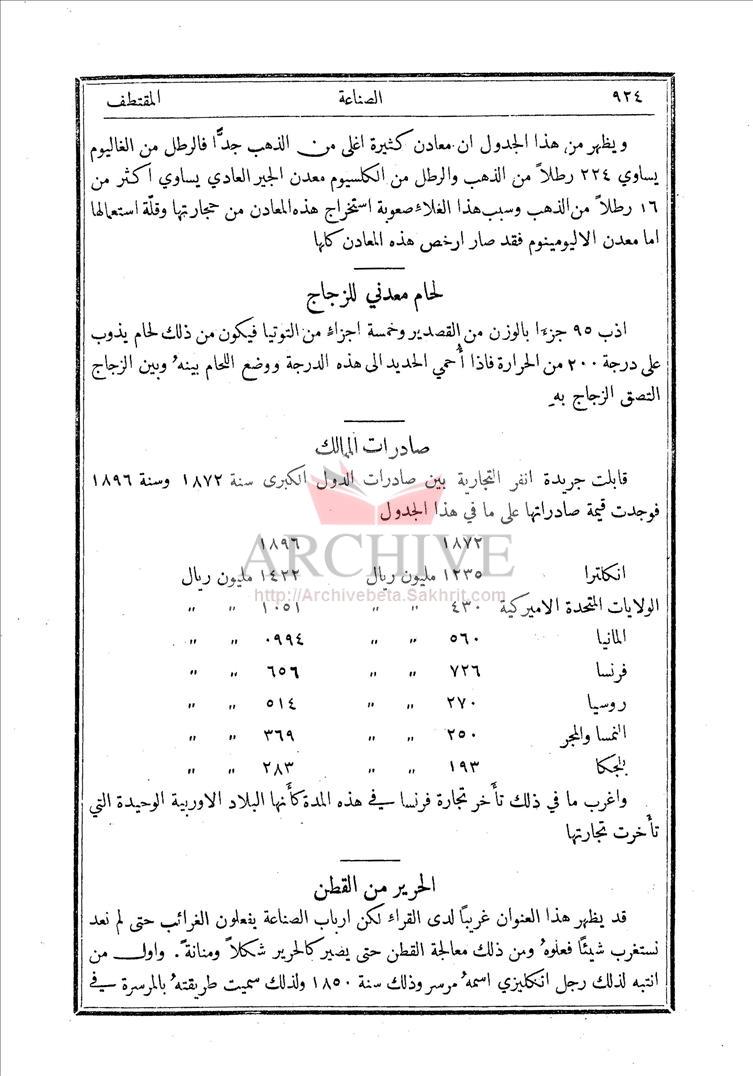 ٩٢٤ الصناعة المقتطف
ويظهر من هذا الجدول ان معادن كثيرة اغلى من الذهب جدًّا فالرطل من الغاليوم
يساوي ٢٢٤ رطلاً من الذهب والرطل من الكلسيوم معدن الجير العادي يساوي أكثر من
١٦ رطلاً من الذهب وسبب هذا الغلاء صعوبة استخراج هذه المعادن من حجارتها وقلّة استعمالها
اما معدن الاليومينوم فقد صار ارخص هذه المعادن كلها
لحام معدني للزجاج
اذب ٩٥ جزءا بالوزن من القصدير وخمسة اجزاء من التوتيا فيكون من ذلك لحام يذوب
على درجة ٢٠٠ من الحرارة فاذا أُحمي الحديد الى هذه الدرجة ووضع اللحام بينهُ وبين الزجاج
التصق الزجاج بهِ
صادرات الممالك
قابلت جريدة انفر التجارية بين صادرات الدول الكبرى سنة ١٨٧٢ وسنة ١٨٩٦
فوجدت قيمة صادراتها على ما في هذا الجدول
١٨٧٢ ١٨٩٦
ARCHIVE
انكلترا ١٢٣٥ مليون ريال ١٤٢٢ مليون ريال
http://Archivebeta.Sakhrit.com
الولايات المتحدة الاميركية ٤٣٠ " " ١٠٥١ " "
المانيا ٥٦٠ " " ٠٩٩٤ " "
فرنسا ٧٢٦ " " ٦٥٦ " "
روسيا ٢٧٠ " " ٥١٤ " "
النمسا والمجر ٢٥٠ " " ٣٦٩ " "
بلجكا ١٩٣ " " ٢٨٣ " "
واغرب ما في ذلك تأخر تجارة فرنسا في هذه المدة كأنها البلاد الاوربية الوحيدة التي
تأخرت تجارتها
الحرير من القطن
قد يظهر هذا العنوان غريبًا لدى القراء لكن ارباب الصناعة يفعلون الغرائب حتى لم نعد
نستغرب شيئًا فعلوهُ ومن ذلك معالجة القطن حتى يصير كالحرير شكلاً ومتانة. واول من
انتبه لذلك رجل انكليزي اسمهُ مرسر وذلك سنة ١٨٥٠ ولذلك سميت طريقتهُ بالمرسرة في